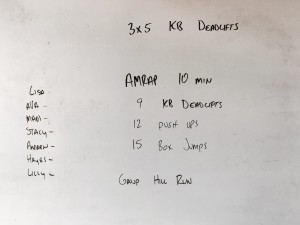 3x5 KB DEADLIFTS
AMRAP 10 MIN
9 KB DEADLIFTS
12 PUSH UPS
15 BOX JUMPS
GROUP HILL RUN
LISA -
MADI -
STACY -
HAYES -
LILLY -